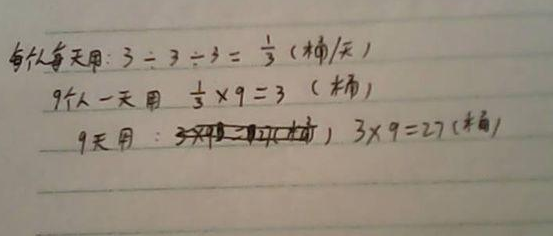 每个人每天用: 3÷3÷3= 1/3 (桶/天)
9个人一天用 1/3×9=3 (桶)
9天用: 3×9=27(桶)